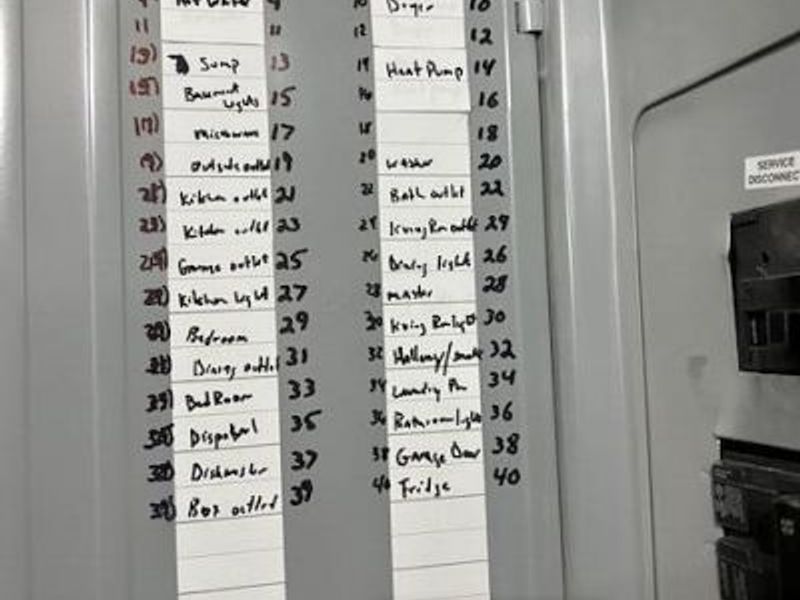 9 9 10 Dryer 10
11 11 12 12
13) Sump 13 14 Heat Pump 14
15) Basement Lights 15 16 16
17) microwave 17 18 18
19) outside outlet 19 20 washer 20
21) Kitchen outlet 21 22 Bath outlet 22
23) Kitchen outlet 23 24 living Rm outlet 24
25) Garage outlet 25 26 Dining light 26
27) Kitchen light 27 28 master 28
29) Bedroom 29 30 living Rm light 30
31) Dining outlet 31 32 Hallway/smoke 32
33) Bed Room 33 34 Laundry Rm 34
35) Disposal 35 36 Bathroom light 36
37) Dishwasher 37 38 Garage Door 38
39) Box outlet 39 40 Fridge 40
SERVICE
DISCONNECT